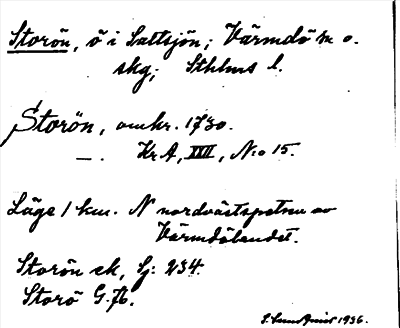 Storön, ö i Saltsjön; Värmdö sn o.
skg; Sthlms l.
Storön, omkr. 1730.
—. Kr A, XVII, No 15.
Läge 1 km. N nordvästspetsen av
Värmdölandet.
Storön ek, Sj: 234.
Storö G.
1936.